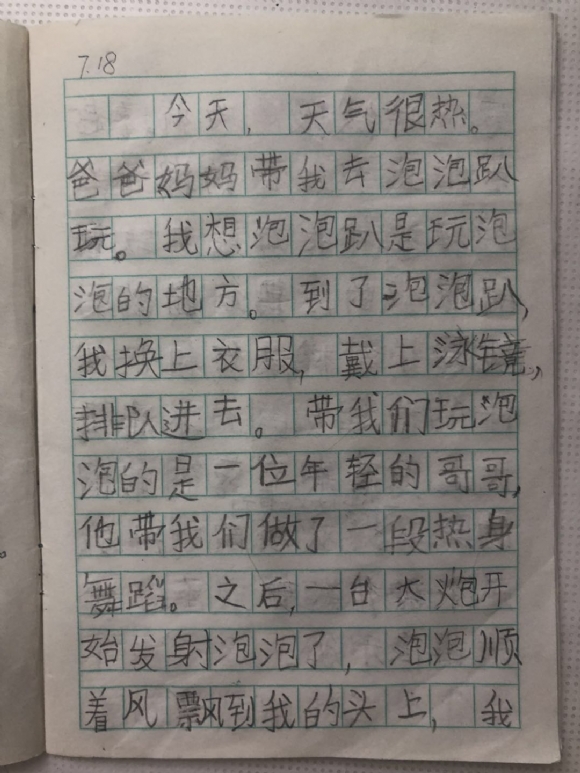 7.18
今天，天气很热。
爸爸妈妈带我去泡泡趴
玩。我想泡泡趴是玩泡
泡的地方。到了泡泡趴，
我换上衣服，戴上泳镜，
排队进去。带我们玩泡
泡的是一位年轻的哥哥，
他带我们做了一段热身
舞蹈。之后，一台大炮开
始发射泡泡了，泡泡顺
着风飘到我的头上，我